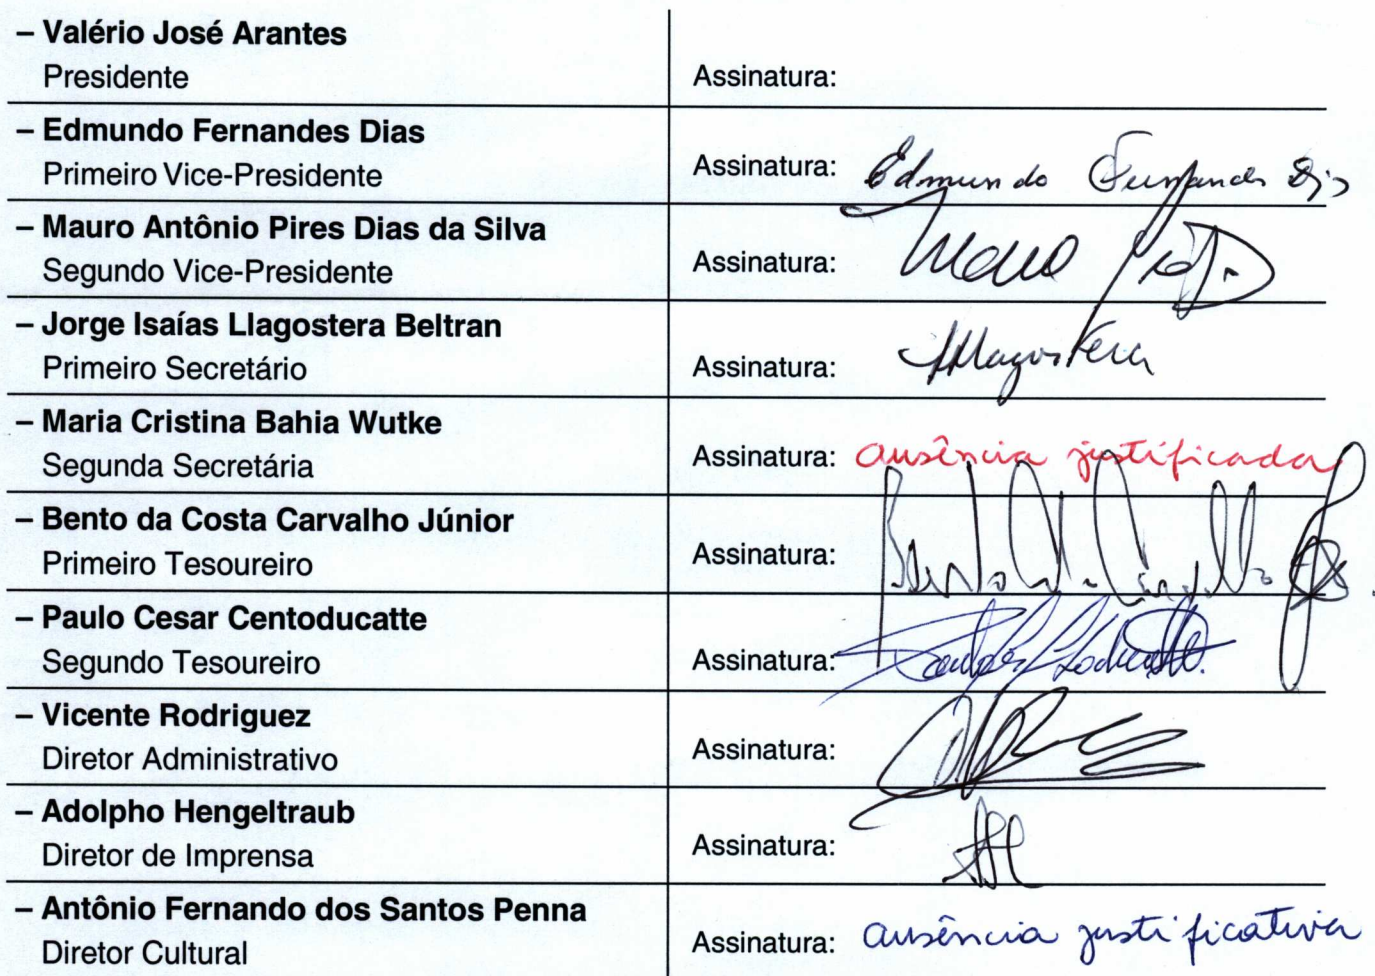 – Valério José Arantes
Presidente
Assinatura:
– Edmundo Fernandes Dias
Primeiro Vice-Presidente
Assinatura: Edmundo Fernandes Dias
– Mauro Antônio Pires Dias da Silva
Segundo Vice-Presidente
Assinatura: Mauro
– Jorge Isaías Llagostera Beltran
Primeiro Secretário
Assinatura: Llagostera
– Maria Cristina Bahia Wutke
Segunda Secretária
Assinatura: ausência justificada
– Bento da Costa Carvalho Júnior
Primeiro Tesoureiro
Assinatura:
– Paulo Cesar Centoducatte
Segundo Tesoureiro
Assinatura:
– Vicente Rodriguez
Diretor Administrativo
Assinatura:
– Adolpho Hengeltraub
Diretor de Imprensa
Assinatura:
– Antônio Fernando dos Santos Penna
Diretor Cultural
Assinatura: ausência justificativa